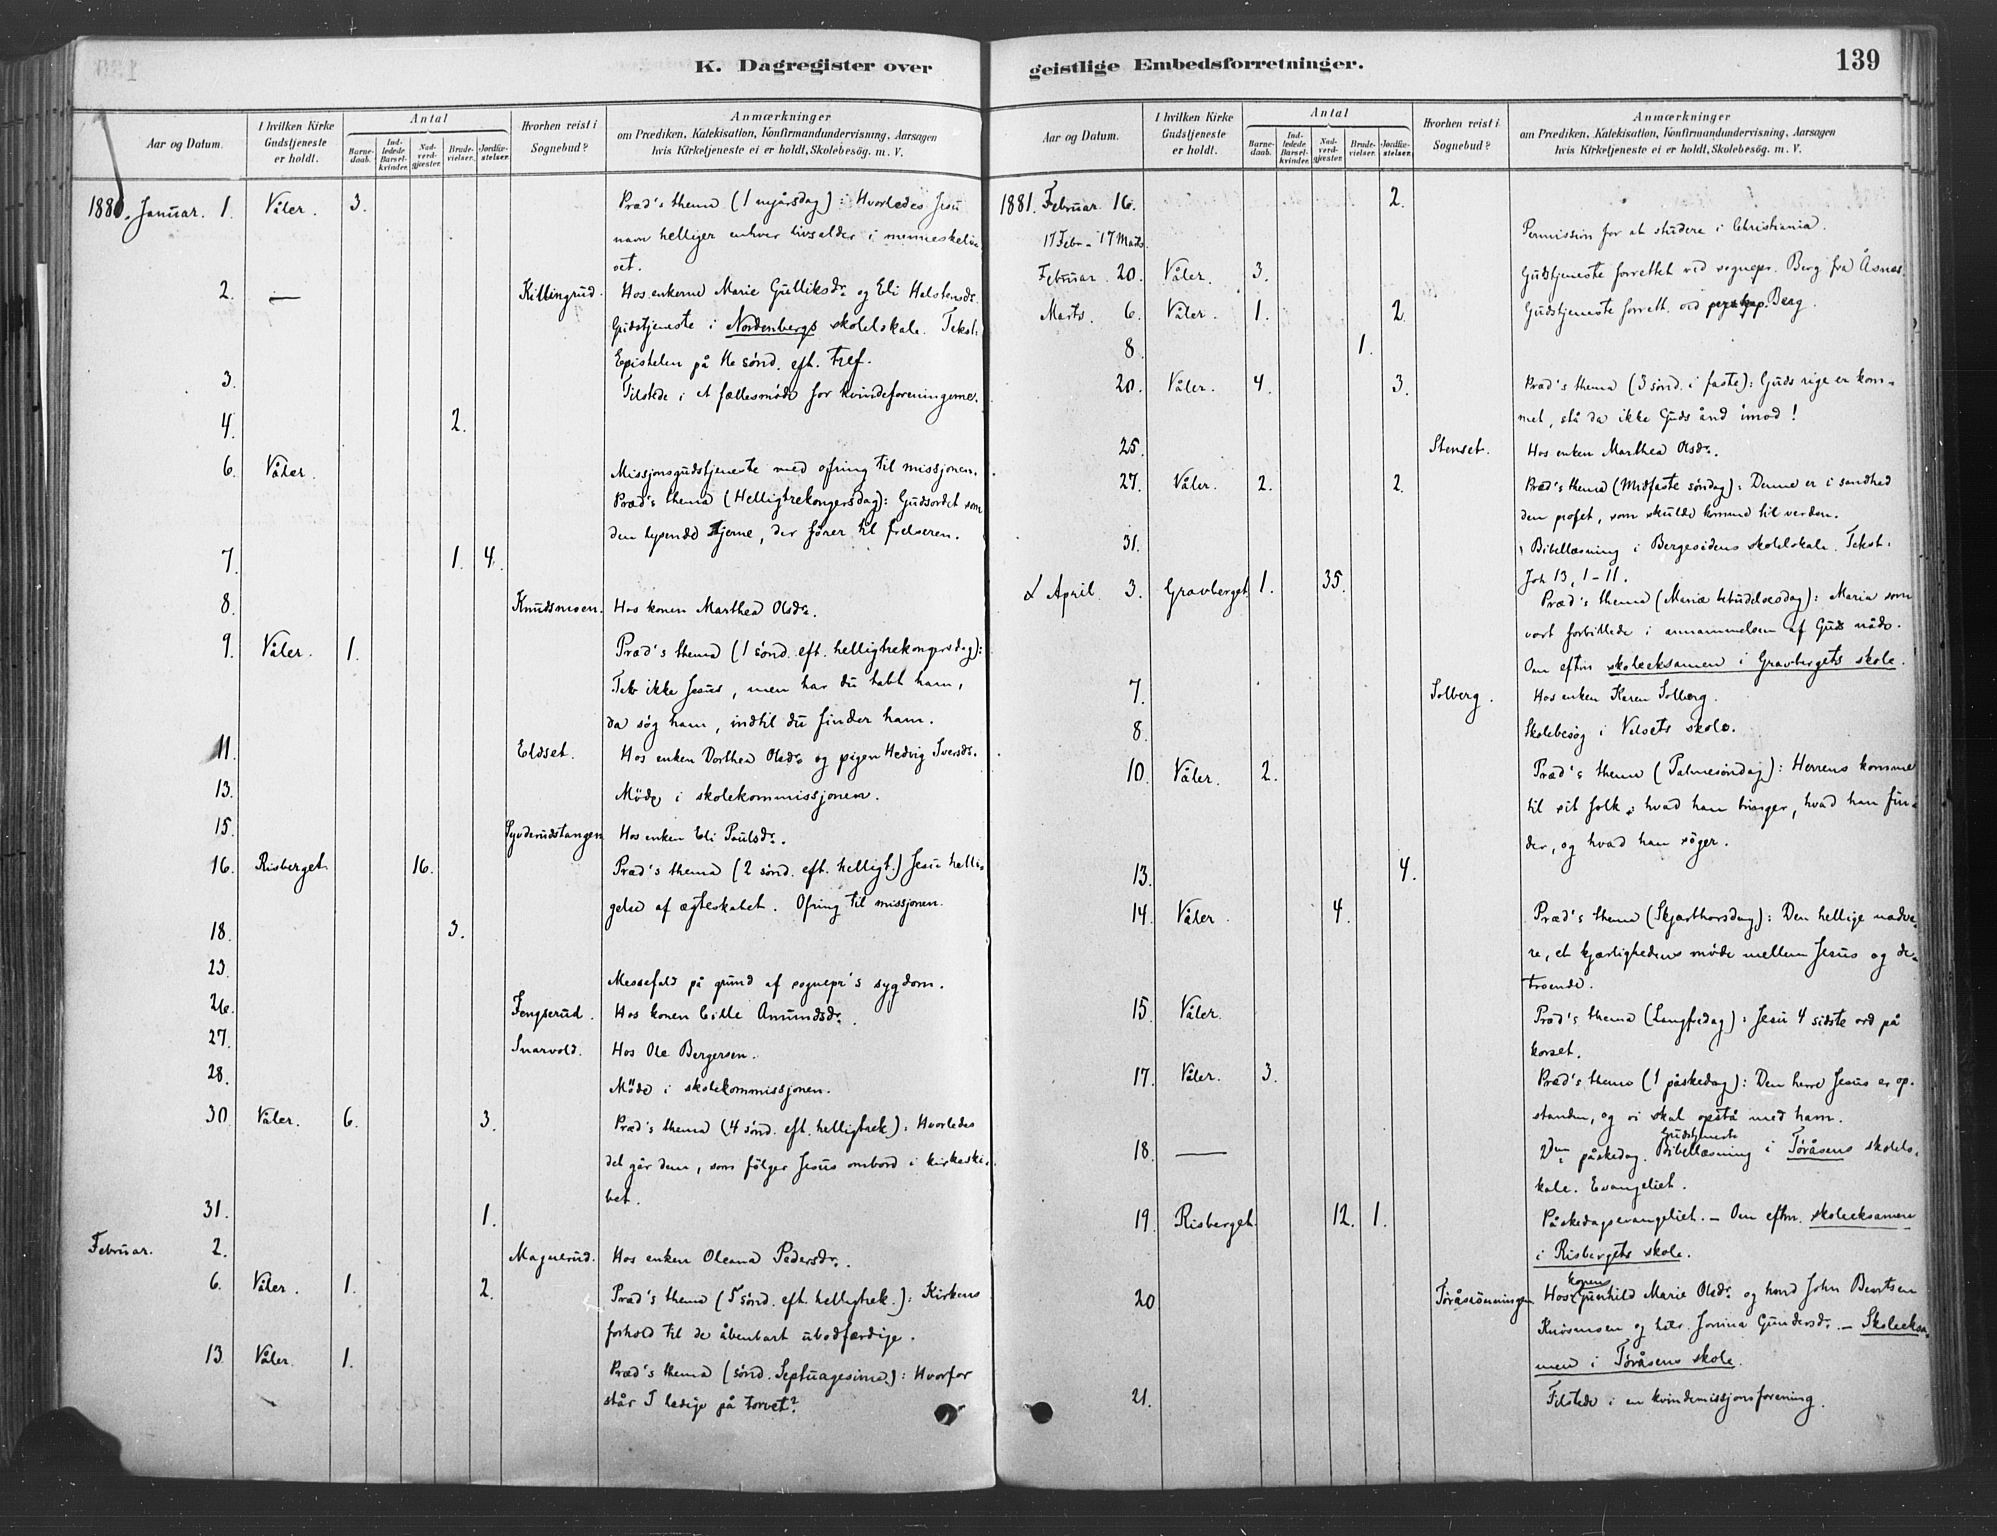 K. Dagregister over
Aar og Datum.
I hvilken Kirke Gudstjeneste er holdt.
Antal
Barne-daab.
Ind-ledede Barsel-kvinder.
Nad-verd-gjester.
Brude-vielser.
Jordfæ-stelser.
Hvorhen reist i Sognebud?
Anmærkninger
om Prædiken, Katekisation, Konfirmandundervisning, Aarsagen
hvis Kirketjeneste ei er holdt, Skolebesög. m. V.
1881. Januar. 1. Våler. 3. Præd's thema (1 nyårsdag): Hvorledes Jesu
navn helliger enhver livsalder i menneskeliv
et.
2. — Killingrud. Hos enkerne Marie Gulliksdr. og Eli Halstensdr.
Gudstjeneste i Nordenbergs skolelokale. Tekst:
Epistelen på 16 sönd. eft. Tref.
3. Tilstede i et fællesmöde for kvindeforeningerne.
4. 2.
6. Våler. Missjonsgudstjeneste med ofring til missjonen.
Præd's thema (Helligtrekongersdag): Gudsordet som
den lysende stjerne, der förer til frelseren.
7. 1. 4.
8. Knudsmoen. Hos konen Marthea Olsdr.
9. Våler. 1. Præd's thema (1 sönd. eft. helligtrekongersdag):
Tab ikke Jesus, men har du tabt ham,
da søg ham, indtil du finder ham.
11. Eldset. Hos enken Dorthea Olsdr. og pigen Hedvig Iversdr.
13. Möde i skolekommissjonen.
15. Syverudstangen Hos enken Eli Paulsdr.
16. Risberget. 16. Præd's thema (2 sönd. eft. helligt.) Jesu helli-
gelse af ægteskabet. Ofring til missjonen.
18. 3.
23. Messefald på grund af sognepr's sygdom.
26. Fengserud. Hos konen Cille Amundsdr.
27. Snarvold. Hos Ole Bergersen.
28. Möde i skolekommissjonen.
30 Våler. 6. 3. Præd's thema (4 sönd. eft. helligtrek): Hvorledes
det går dem, som fölger Jesus ombord i kirkeski-
bet.
31. 1.
Februar. 2. Magnerud. Hos enken Oleana Pedersdr.
6. Våler. 1. 2. Præd's thema (5 sönd. eft. helligtrek.): Kirkens
forhold til de åbenbart ubodfærdige.
13. Våler. 1. Præd's thema (sönd. Septuagesima): Hvorfor
står I ledige på torvet?
geistlige Embedsforretninger.
139
Aar og Datum.
I hvilken Kirke Gudstjeneste er holdt.
Antal
Barne-daab.
Ind-ledede Barsel-kvinder.
Nad-verd-gjester.
Brude-vielser.
Jordfæ-stelser.
Hvorhen reist i Sognebud?
Anmærkninger
om Prædiken, Katekisation, Konfirmandundervisning, Aarsagen
hvis Kirketjeneste ei er holdt, Skolebesög. m. V.
1881. Februar 16. 2.
17 Febr - 17 Marts. Permission for at studere i Christiania.
Februar 20. Våler. 3. Gudstjeneste forrettet ved sognepr. Berg fra Åsnes.
Marts. 6. Våler. 1. 2. Gudstjeneste forrett. ved Berg.
8. 1.
20. Våler. 4. 3. Præd's thema (3 sönd. i faste): Guds rige er kom-
met, stå da ikke Guds ånd imod!
25. Stenset. Hos enken Marthea Olsdr.
27. Våler. 2. 2. Præd's thema (Midfaste söndag): Denne er i sandhed
den profet, som skulde komme til verden.
31. Bibellæsning i Bergesidens skolelokale. Tekst.
Joh 13, 1-11.
April 3. Gravberget 1. 35. Præd's thema (Mariæ bebudelsesdag): Maria som
vort forbillede i annammelsen af Guds nåde.
Om eftm skoleeksamen i Gravbergets skole.
7. Solberg. Hos enken Karen Solberg.
8. Skolebesög i Velsets skole.
10. Våler. 2. Præd's thema (Palmesöndag): Herrens komme
til sit folk: hvad han bringer, hvad han fin-
der, og hvad han söger.
13. 4.
14. Våler 4. Præd's thema (Skjærthorsdag): Den hellige nadve-
re, et kjærlighedens möde mellem Jesus og de
troende.
15. Våler. Præd's thema (Langfredag): Jesu 4 sidste ord på
korset.
17. Våler. 3. Præd's thema (1 påskedag): Den herre Jesus er op-
standen, og vi skal opstå med ham.
Gudstjeneste
18. — 2den påskedag. Bibellæsning i Töråsens skolelo-
kale. Evangeliet.
19. Risberget. 12. 1. Påskedagsevangeliet. — Om eftm. skoleeksamen
i Risbergets skole.
konen
20 Töråsrönningen Hos Gunhild Marie Olsdr. og hmd John Berntsen
og hstr. Jonina Gundersdr. — Skoleeksa-
men i Töråsens skole.
21. Tilstede i en kvindemissjonsforening.